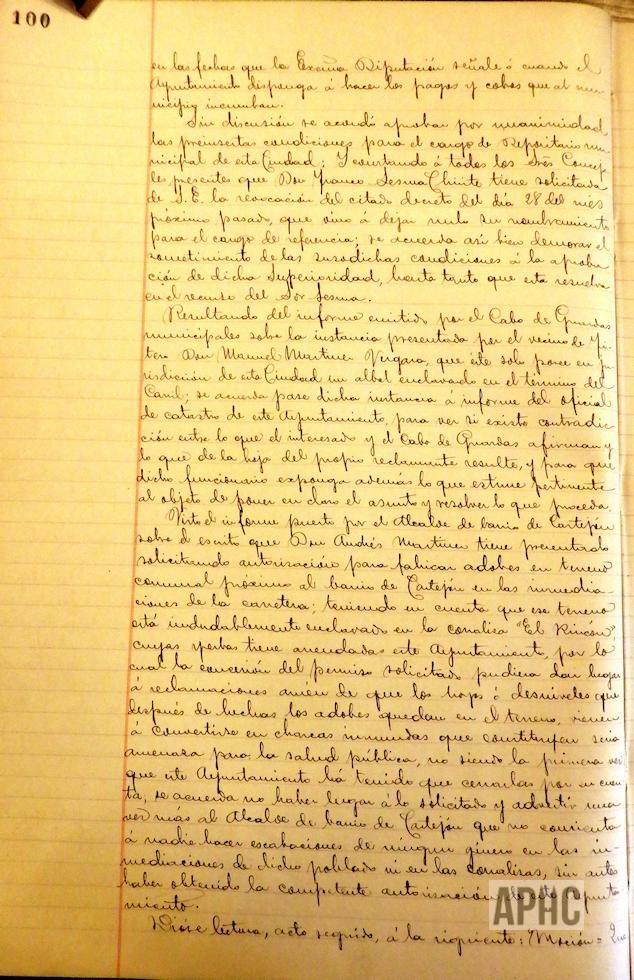 100
en las fechas que la Excma Diputación señale ó cuando el
Ayuntamiento disponga á hacer los pagos y cobros que al mu-
nicipio incumban.
Sin discusión se acordó aprobar por unanimidad
las preinsertas condiciones para el cargo de Depositario mu-
nicipal de esta Ciudad; Y constando á todos los Sres Conceja-
les presentes que Don Franco Lesma Chivite tiene solicitada
de S.E. la revocación del citado decreto del día 28 del mes
próximo pasado, que vino á dejar nulo su nombramiento
para el cargo de referencia; se acuerda así bien demorar el
sometimiento de las susodichas condiciones á la aproba-
ción de dicha Superioridad, hasta tanto que esta resuelva
en el recurso del Sor Lesma.
Resultando del informe emitido por el Cabo de Guardas
municipales sobre la instancia presentada por el vecino de Fi-
tero Don Manuel Martinez Vergara, que éste solo posee en ju-
risdicción de esta Ciudad un albal enclavado en el término del
Carril; se acuerda pase dicha instancia á informe del oficial
de catastro de este Ayuntamiento, para ver si existe contradic-
ción entre lo que el interesado y el Cabo de Guardas afirman y
lo que de la hoja del propio reclamante resulte, y para que
dicho funcionario exponga además lo que estime pertinente
al objeto de poner en claro el asunto y resolver lo que proceda.
Visto el informe puesto por el Alcalde de barrio de Castejón
sobre el escrito que Don Andrés Martinez tiene presentado
solicitando autorización para fabricar adobes en terreno
comunal próximo al barrio de Castejón en las inmedia-
ciones de la carretera; teniendo en cuenta que ese terreno
está indudablemente enclavado en la corraliza "El Rincón",
cuyas yerbas tiene arrendadas este Ayuntamiento, por lo
cual la concesión del permiso solicitado pudiera dar lugar
á reclamaciones amén de que los hoyos ó desniveles que
después de hechos los adobes quedan en el terreno, vienen
á convertirse en charcas inmundas que constituyen seria
amenaza para la salud pública, no siendo la primera vez
que este Ayuntamiento há tenido que cerrarlas por su cuen-
ta, se acuerda no haber lugar á lo solicitado y advertir una
vez más al Alcalde de barrio de Castejón que no consienta
á nadie hacer escabaciones de ningun género en las in-
mediaciones de dicho poblado ni en las corralizas, sin antes
haber obtenido la competente autorización de este Ayunta-
miento.
Dióse lectura, acto seguido, á la siguiente: "Moción = Que
APHC